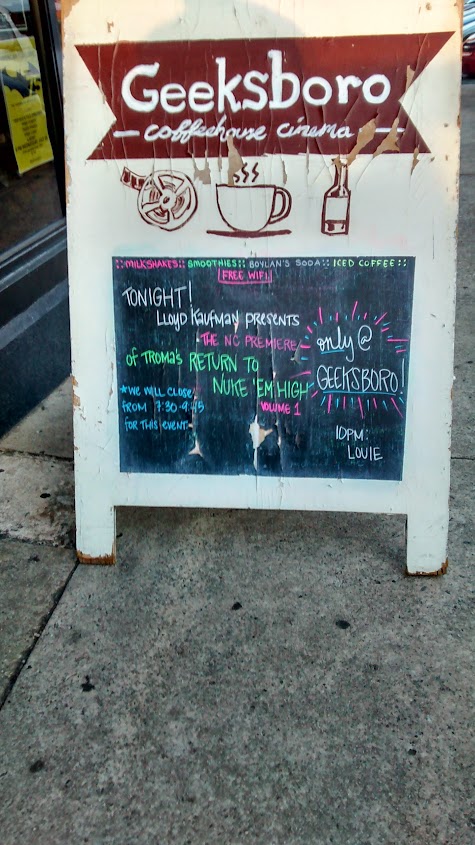 Geeksboro
coffeehouse cinema
::MILKSHAKES:: SMOOTHIES:: BOYLAN'S SODA:: ICED COFFEE::
FREE WIFI
TONIGHT!
LLOYD KAUFMAN PRESENTS
THE NC PREMIERE
OF TROMA'S RETURN TO
NUKE 'EM HIGH
VOLUME 1
*WE WILL CLOSE
FROM 7:30-9:45
FOR THIS EVENT
only @
GEEKSBORO!
10PM:
LOUIE